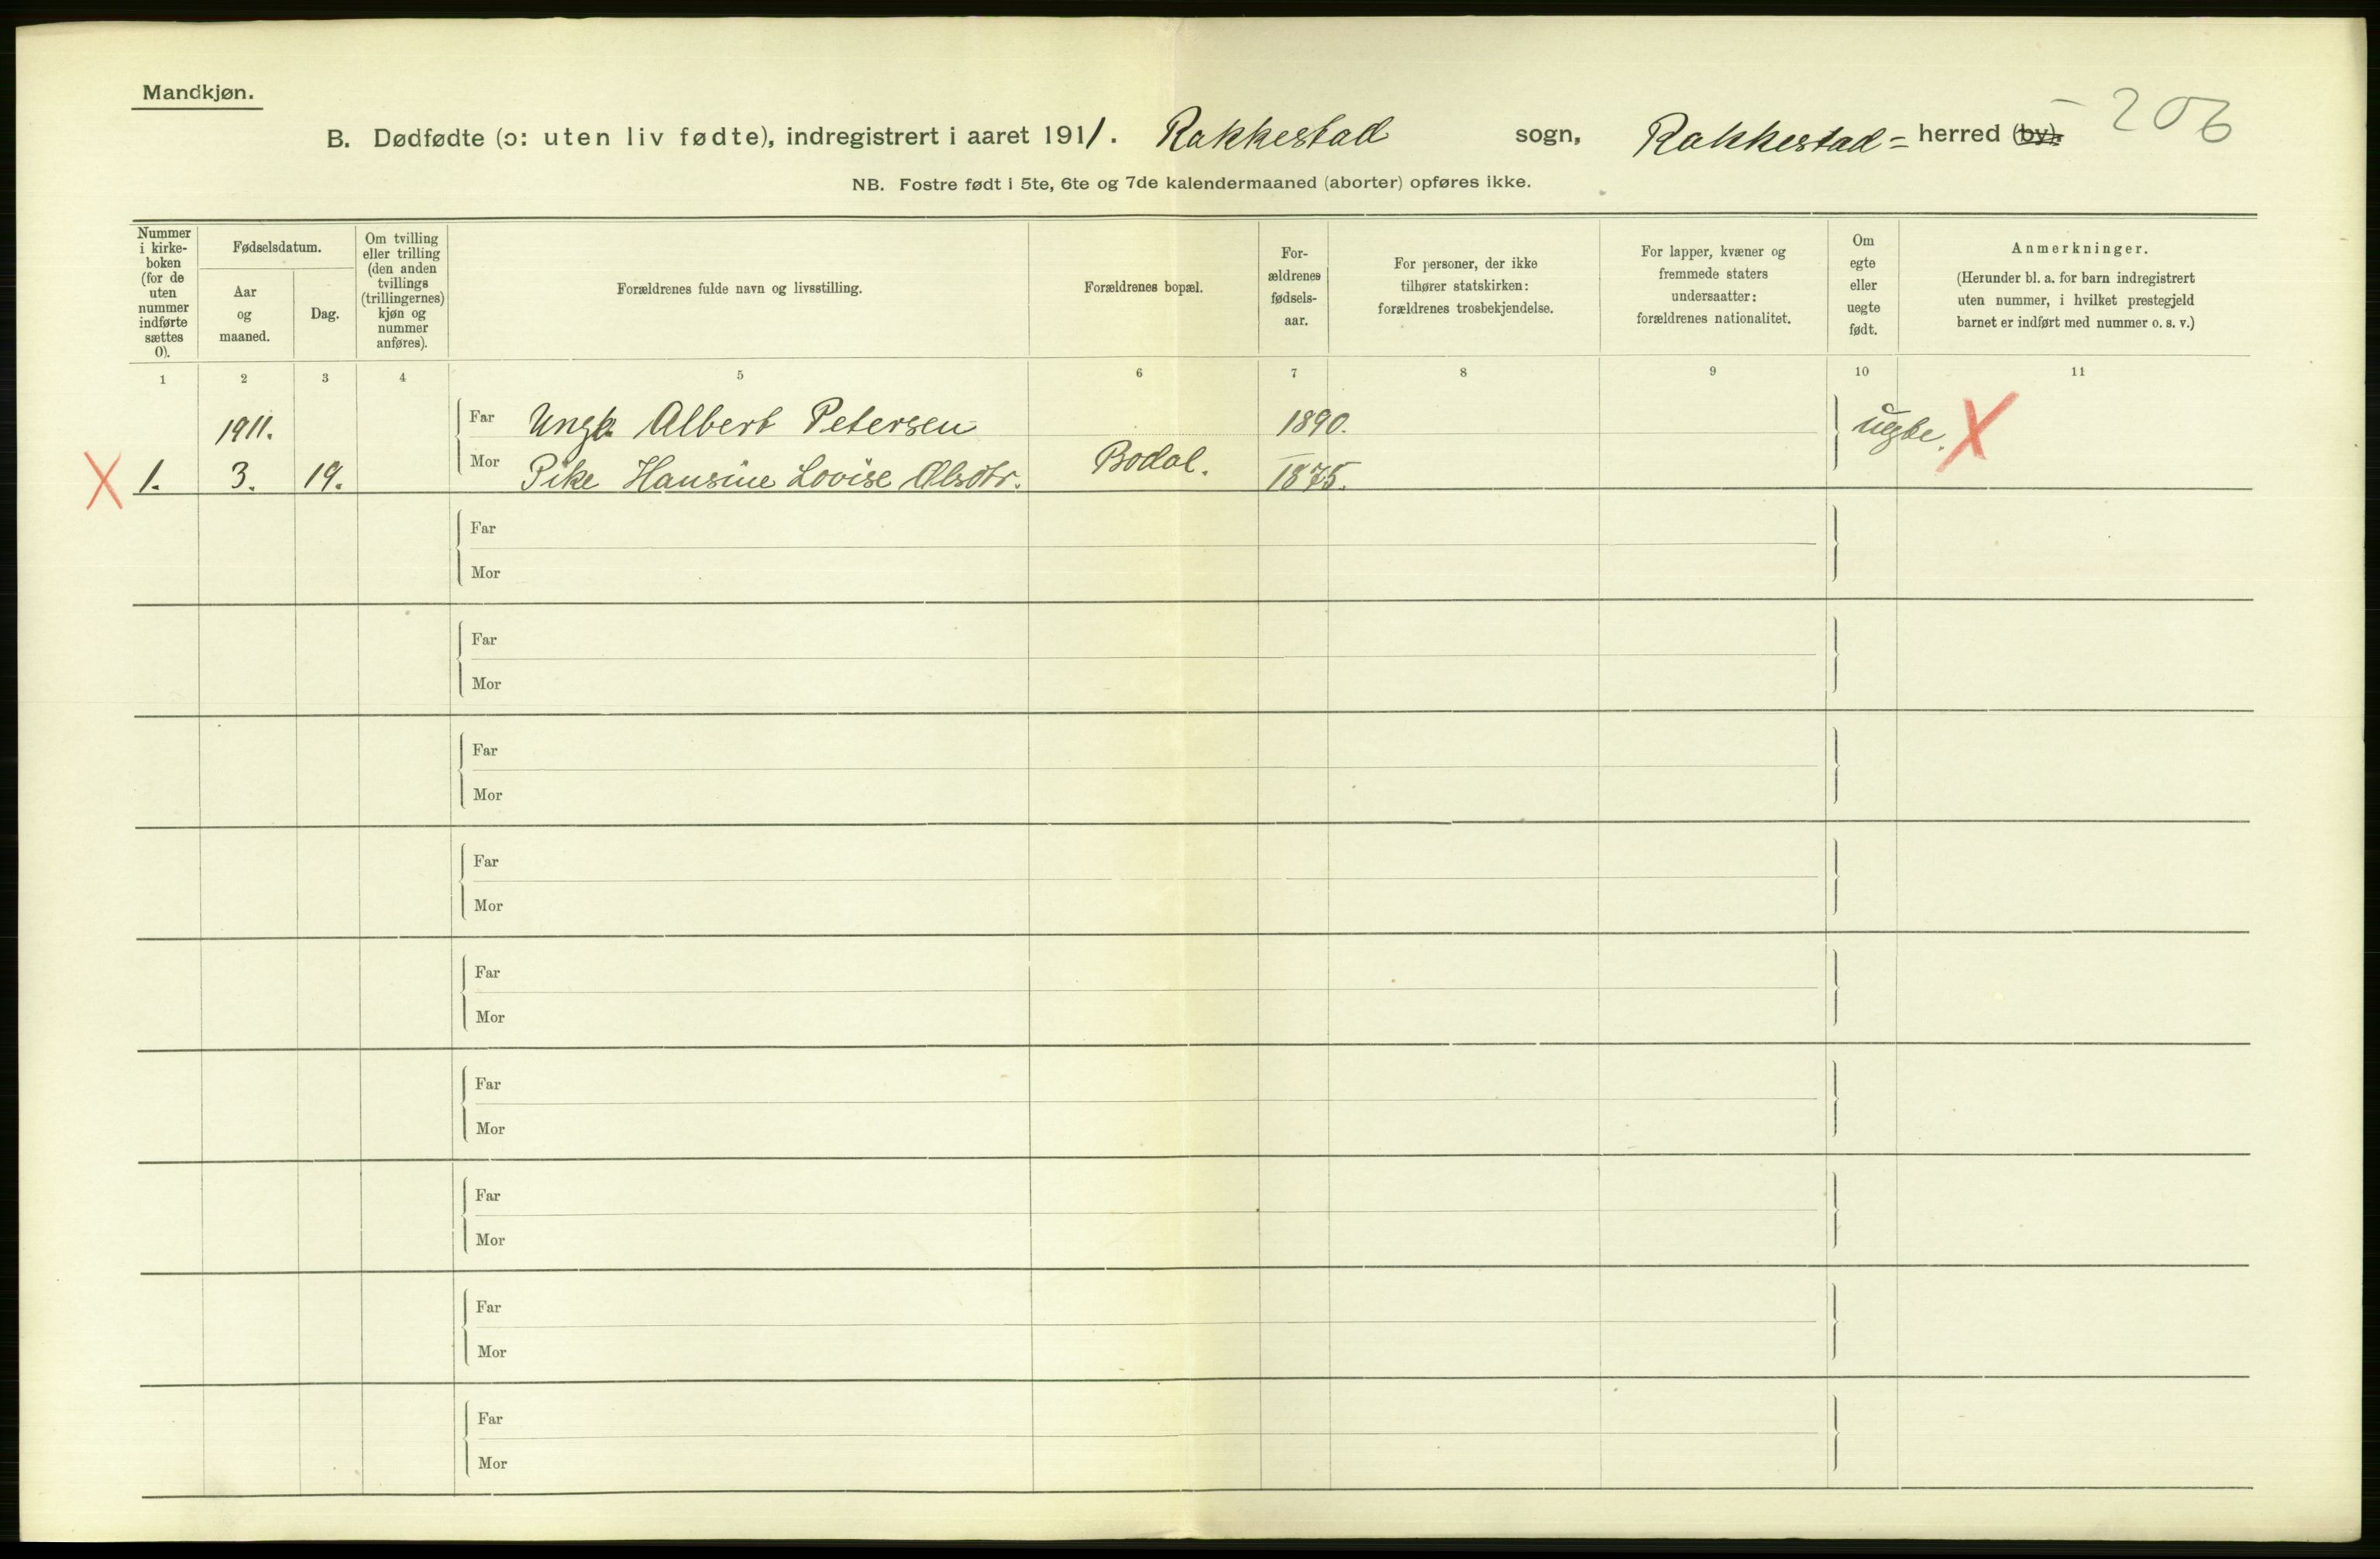 Mandkjøn.
B. Dødfødte (ɔ: uten liv fødte), indregistrert i aaret 1911. Rakkestad sogn, Rakkestad = herred (by).
206
NB. Fostre født i 5te, 6te og 7de kalendermaaned (aborter) opføres ikke.
Nummer
i kirke-
boken
(for de
uten
nummer
indførte
sættes
0).
Fødselsdatum.
Aar
og
maaned.
Dag.
Om tvilling
eller trilling
(den anden
tvillings
(trillingernes)
kjøn og
nummer
anføres).
Forældrenes fulde navn og livsstilling.
Forældrenes bopæl.
For-
ældrenes
fødsels-
aar.
For personer, der ikke
tilhører statskirken:
forældrenes trosbekjendelse.
For lapper, kvæner og
fremmede staters
undersaatter:
forældrenes nationalitet.
Om
egte
eller
uegte
født.
Anmerkninger.
(Herunder bl. a. for barn indregistrert
uten nummer, i hvilket prestegjeld
barnet er indført med nummer o. s. v.)
1 2 3 4 5 6 7 8 9 10 11
1911. Far Ungk. Albert Petersen 1890. uegte. X
X 1. 3. 19. Mor Pike Hansine Lovise Olsdtr. Bodal. 1875.
Far
Mor
Far
Mor
Far
Mor
Far
Mor
Far
Mor
Far
Mor
Far
Mor
Far
Mor
Far
Mor